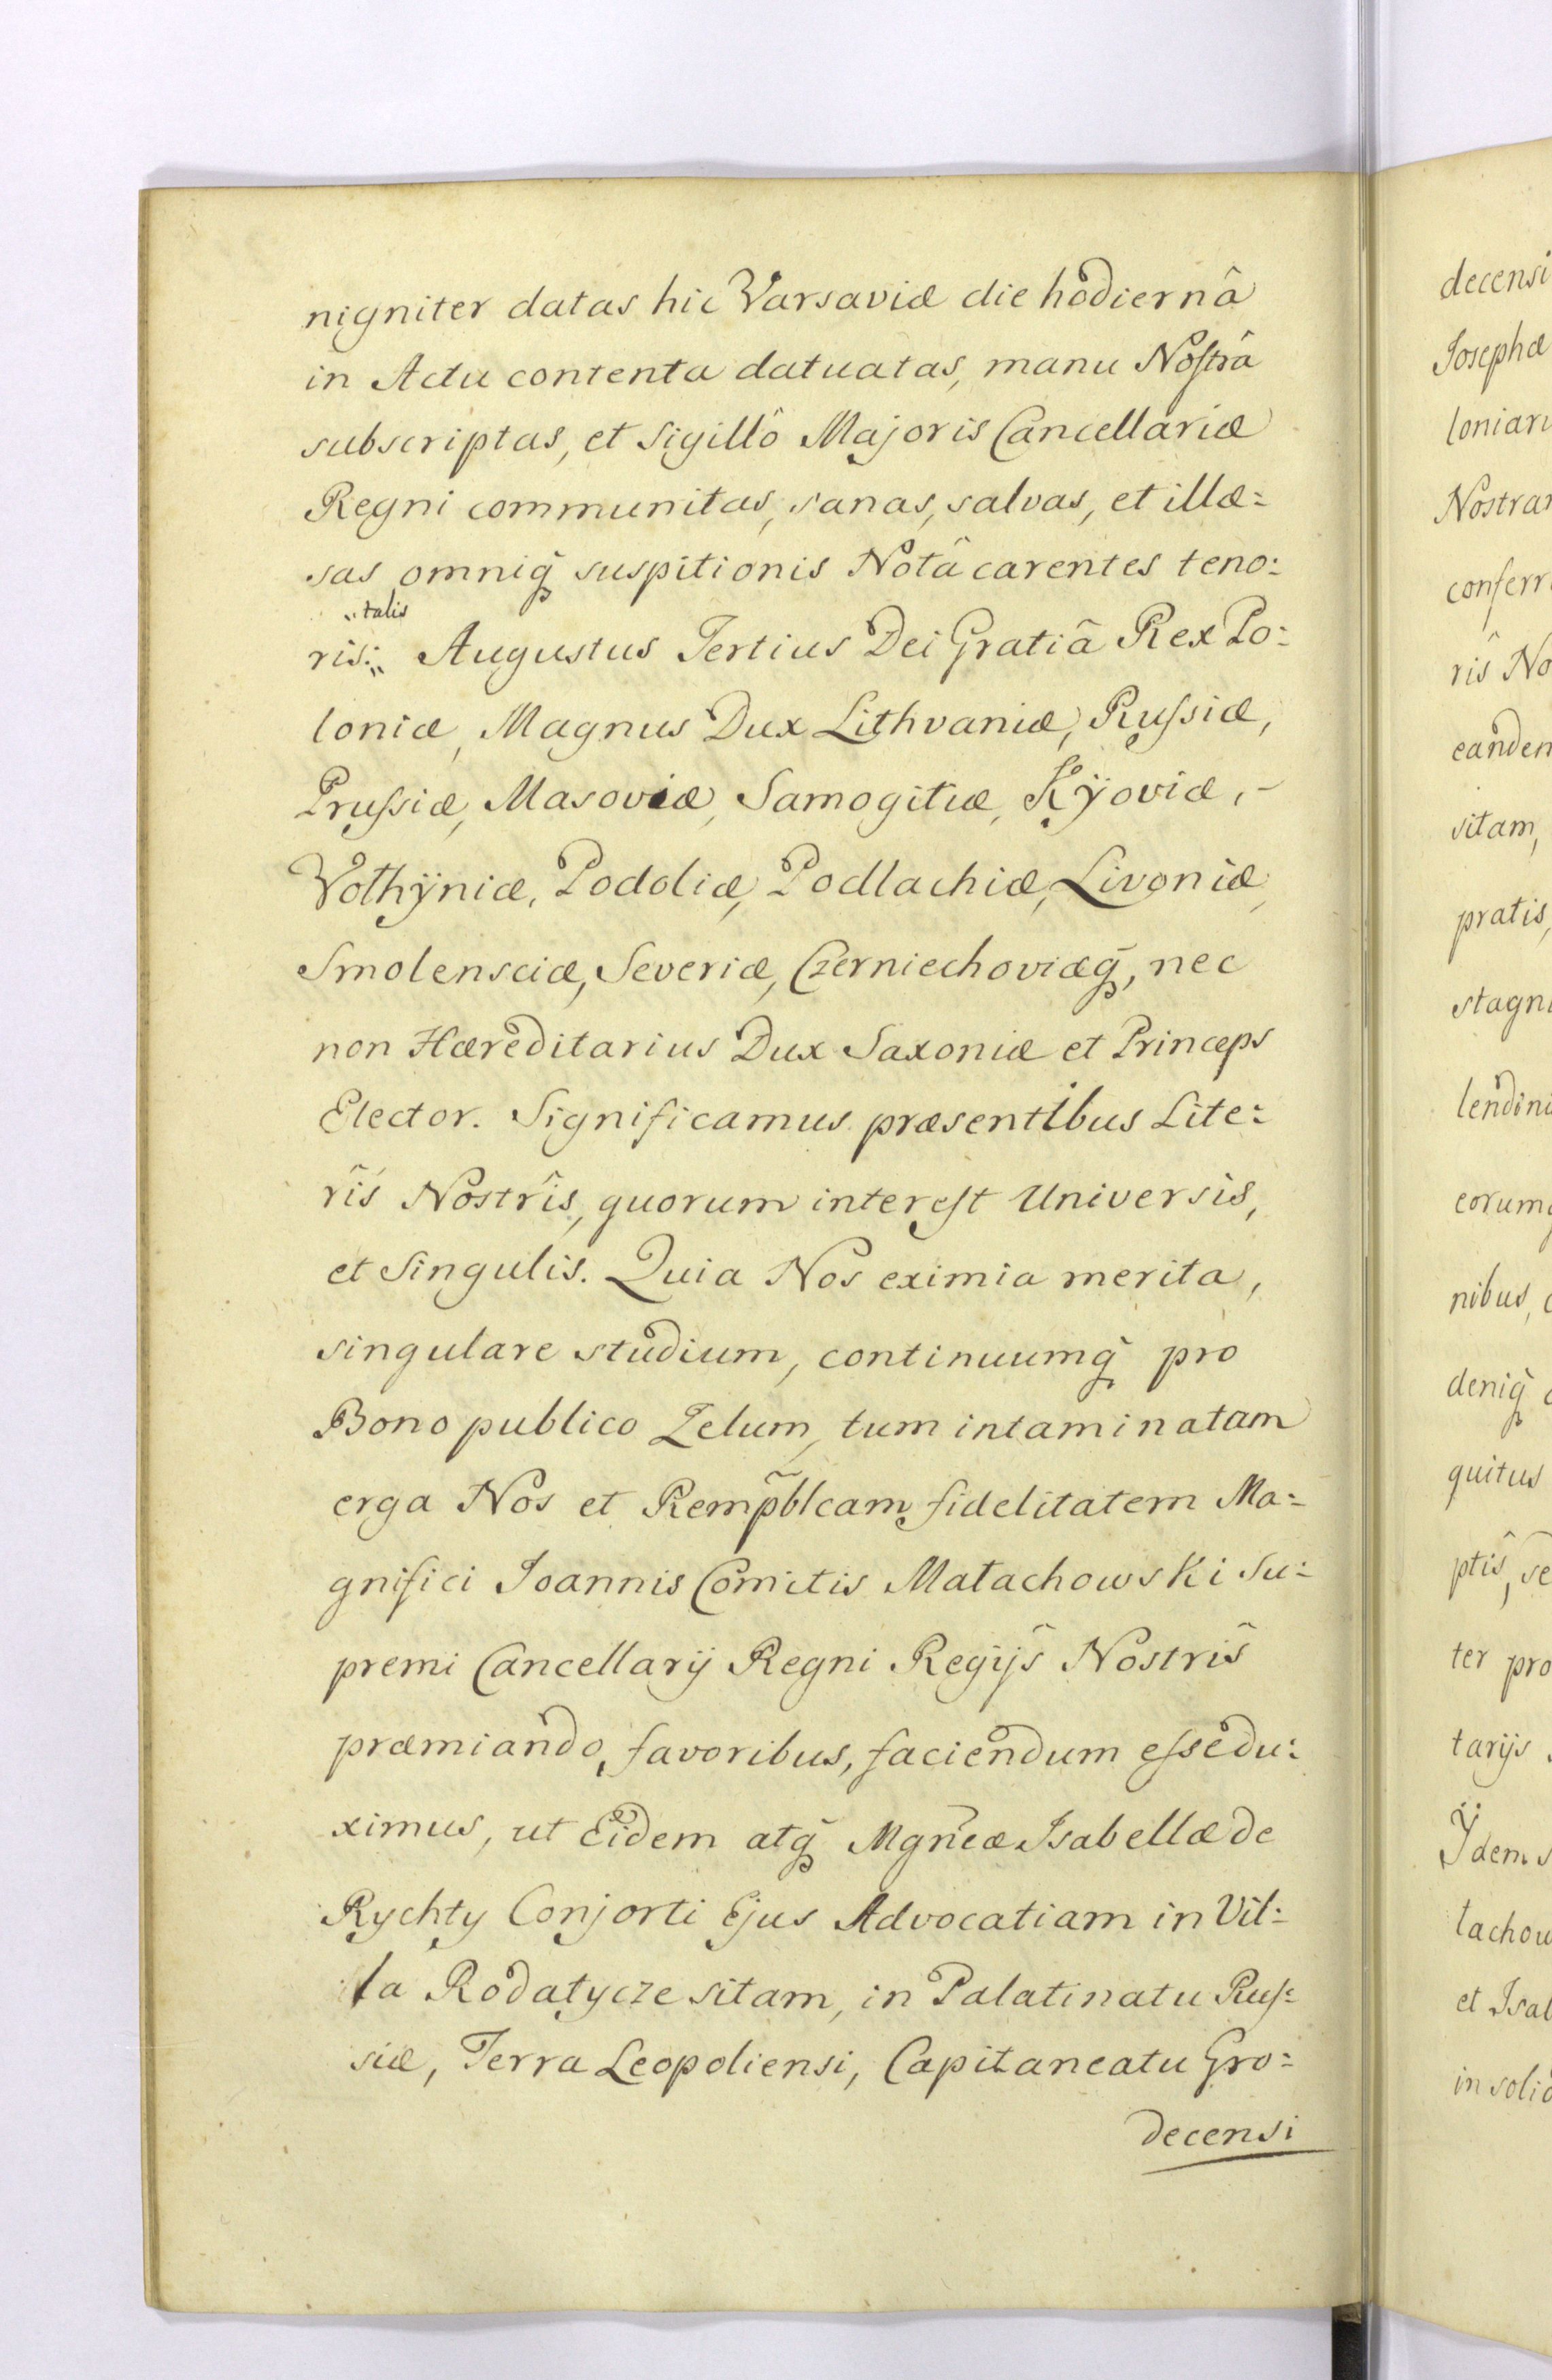 nigniter datas hic Varsaviæ die hodiernâ
in Actu contenta datuatas, manu Nostrâ
subscriptas, et Sigillô Majoris Cancellariæ
Regni communitas, sanas, salvas, et illæ=
sas omniq̃ suspitionis Notâ carentes teno:
talis
ris: Augustus Tertius Dei Gratiâ Rex Po:
loniæ, Magnus Dux Lithvaniæ, Russiæ,
Prussiæ, Masoviæ, Samogitiæ, Kÿoviæ, -
Wolhÿniæ, Podoliæ, Podlachiæ, Livoniæ,
Smolensciæ, Severiæ, Czerniechoviæq̃, nec
non Hæreditarius Dux Saxoniæ et Princeps
Elector. Significamus præsentibus Lite:
rîs Nostrîs, quorum interest Universis,
et Singulis. Quia Nos eximia merita,
singulare studium, continuumq̃ pro
Bono publico Zelum, tum intaminatam
erga Nos et Rempb̃lcam fidelitatem Ma:
gnifici Joannis Comitis Małachowski Su:
premi Cancellarij Regni Regijs̃ Nostrîs
præmiando, favoribus, faciendum esse du:
ximus, ut Eidem atq̃ Mgñcæ Isabellæ de
Rychty Consorti Ejus Advocatiam in Vil:
la Rodatycze sitam, in Palatinatu Rus:
siæ, Terra Leopoliensi, Capitaneatu Gro=
decensi
decensi
Josephæ
loniaru
Nostrar
conferr
rîs No
eandem
sitam,
pratis,
stagni
lendini
eorumq
nibus,
deniq̃
quitus
ptîs, se
ter pro
tarijs
Ÿdem
łachow
et Isab
in solid